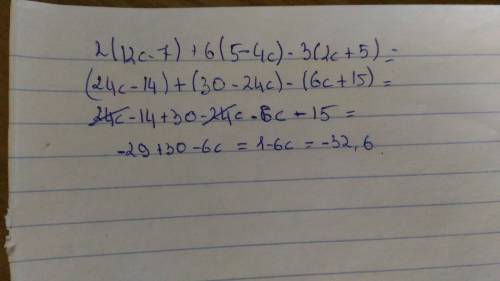 2(12c-7)+6(5-4c)-3(2c+5)=
(24c-14)+(30-24c)-(6c+15)=
24c-14+30-24c-6c-15=
-29+30-6c=1-6c=-32,6